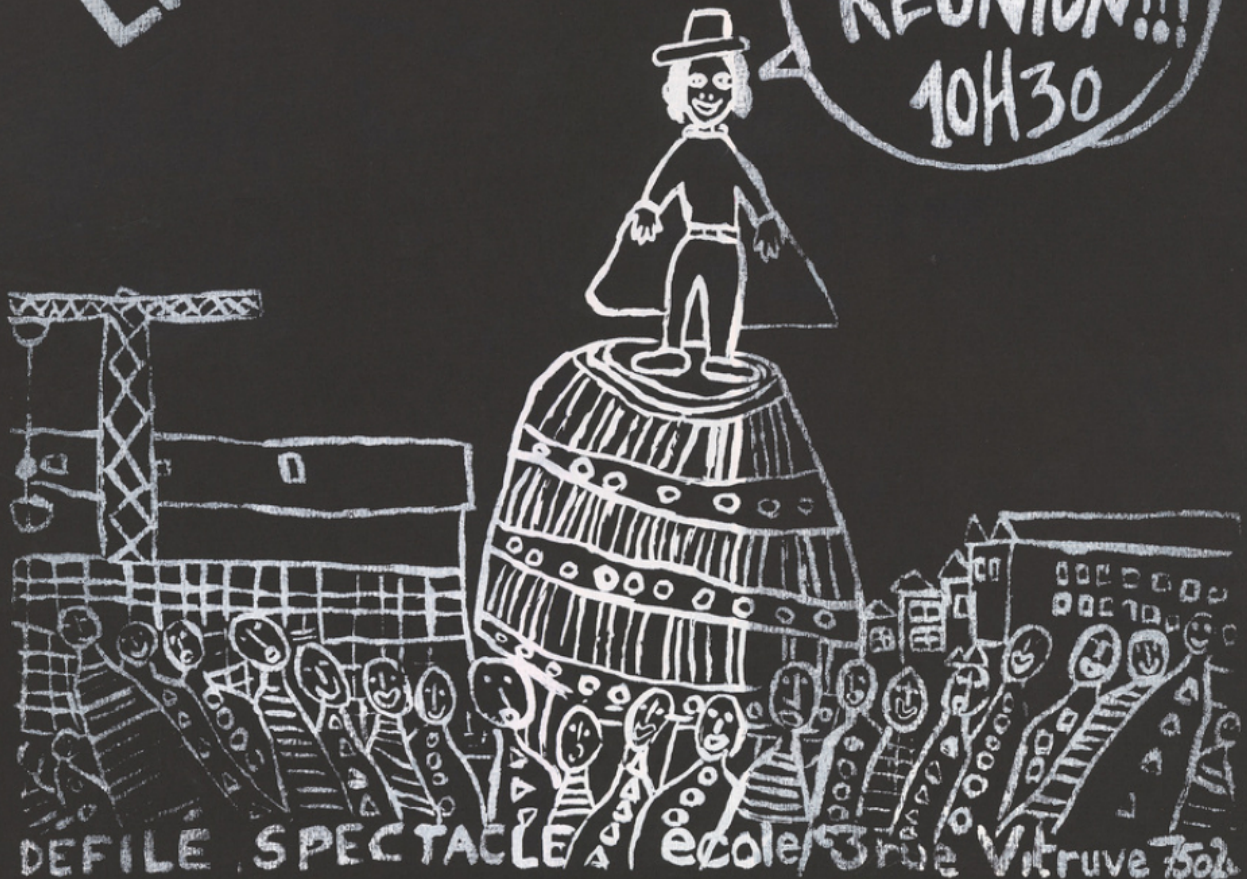 RÉUNION!!!
10H30
DÉFILÉ SPECTACLE école 3 rue Vitruve 7502